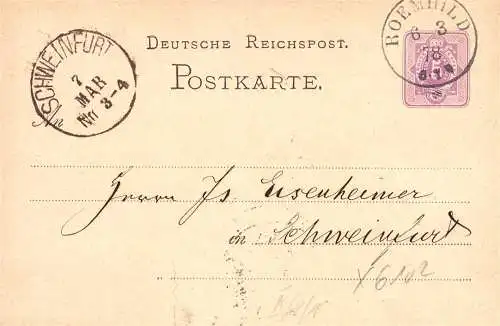 SCHWEINFURT
7
MAR
Nn 3-4
DEUTSCHE REICHSPOST.
POSTKARTE.
ROEMHILD
6 3
78
An
Herrn Js. Eisenheimer
in Schweinfurt
Y6102